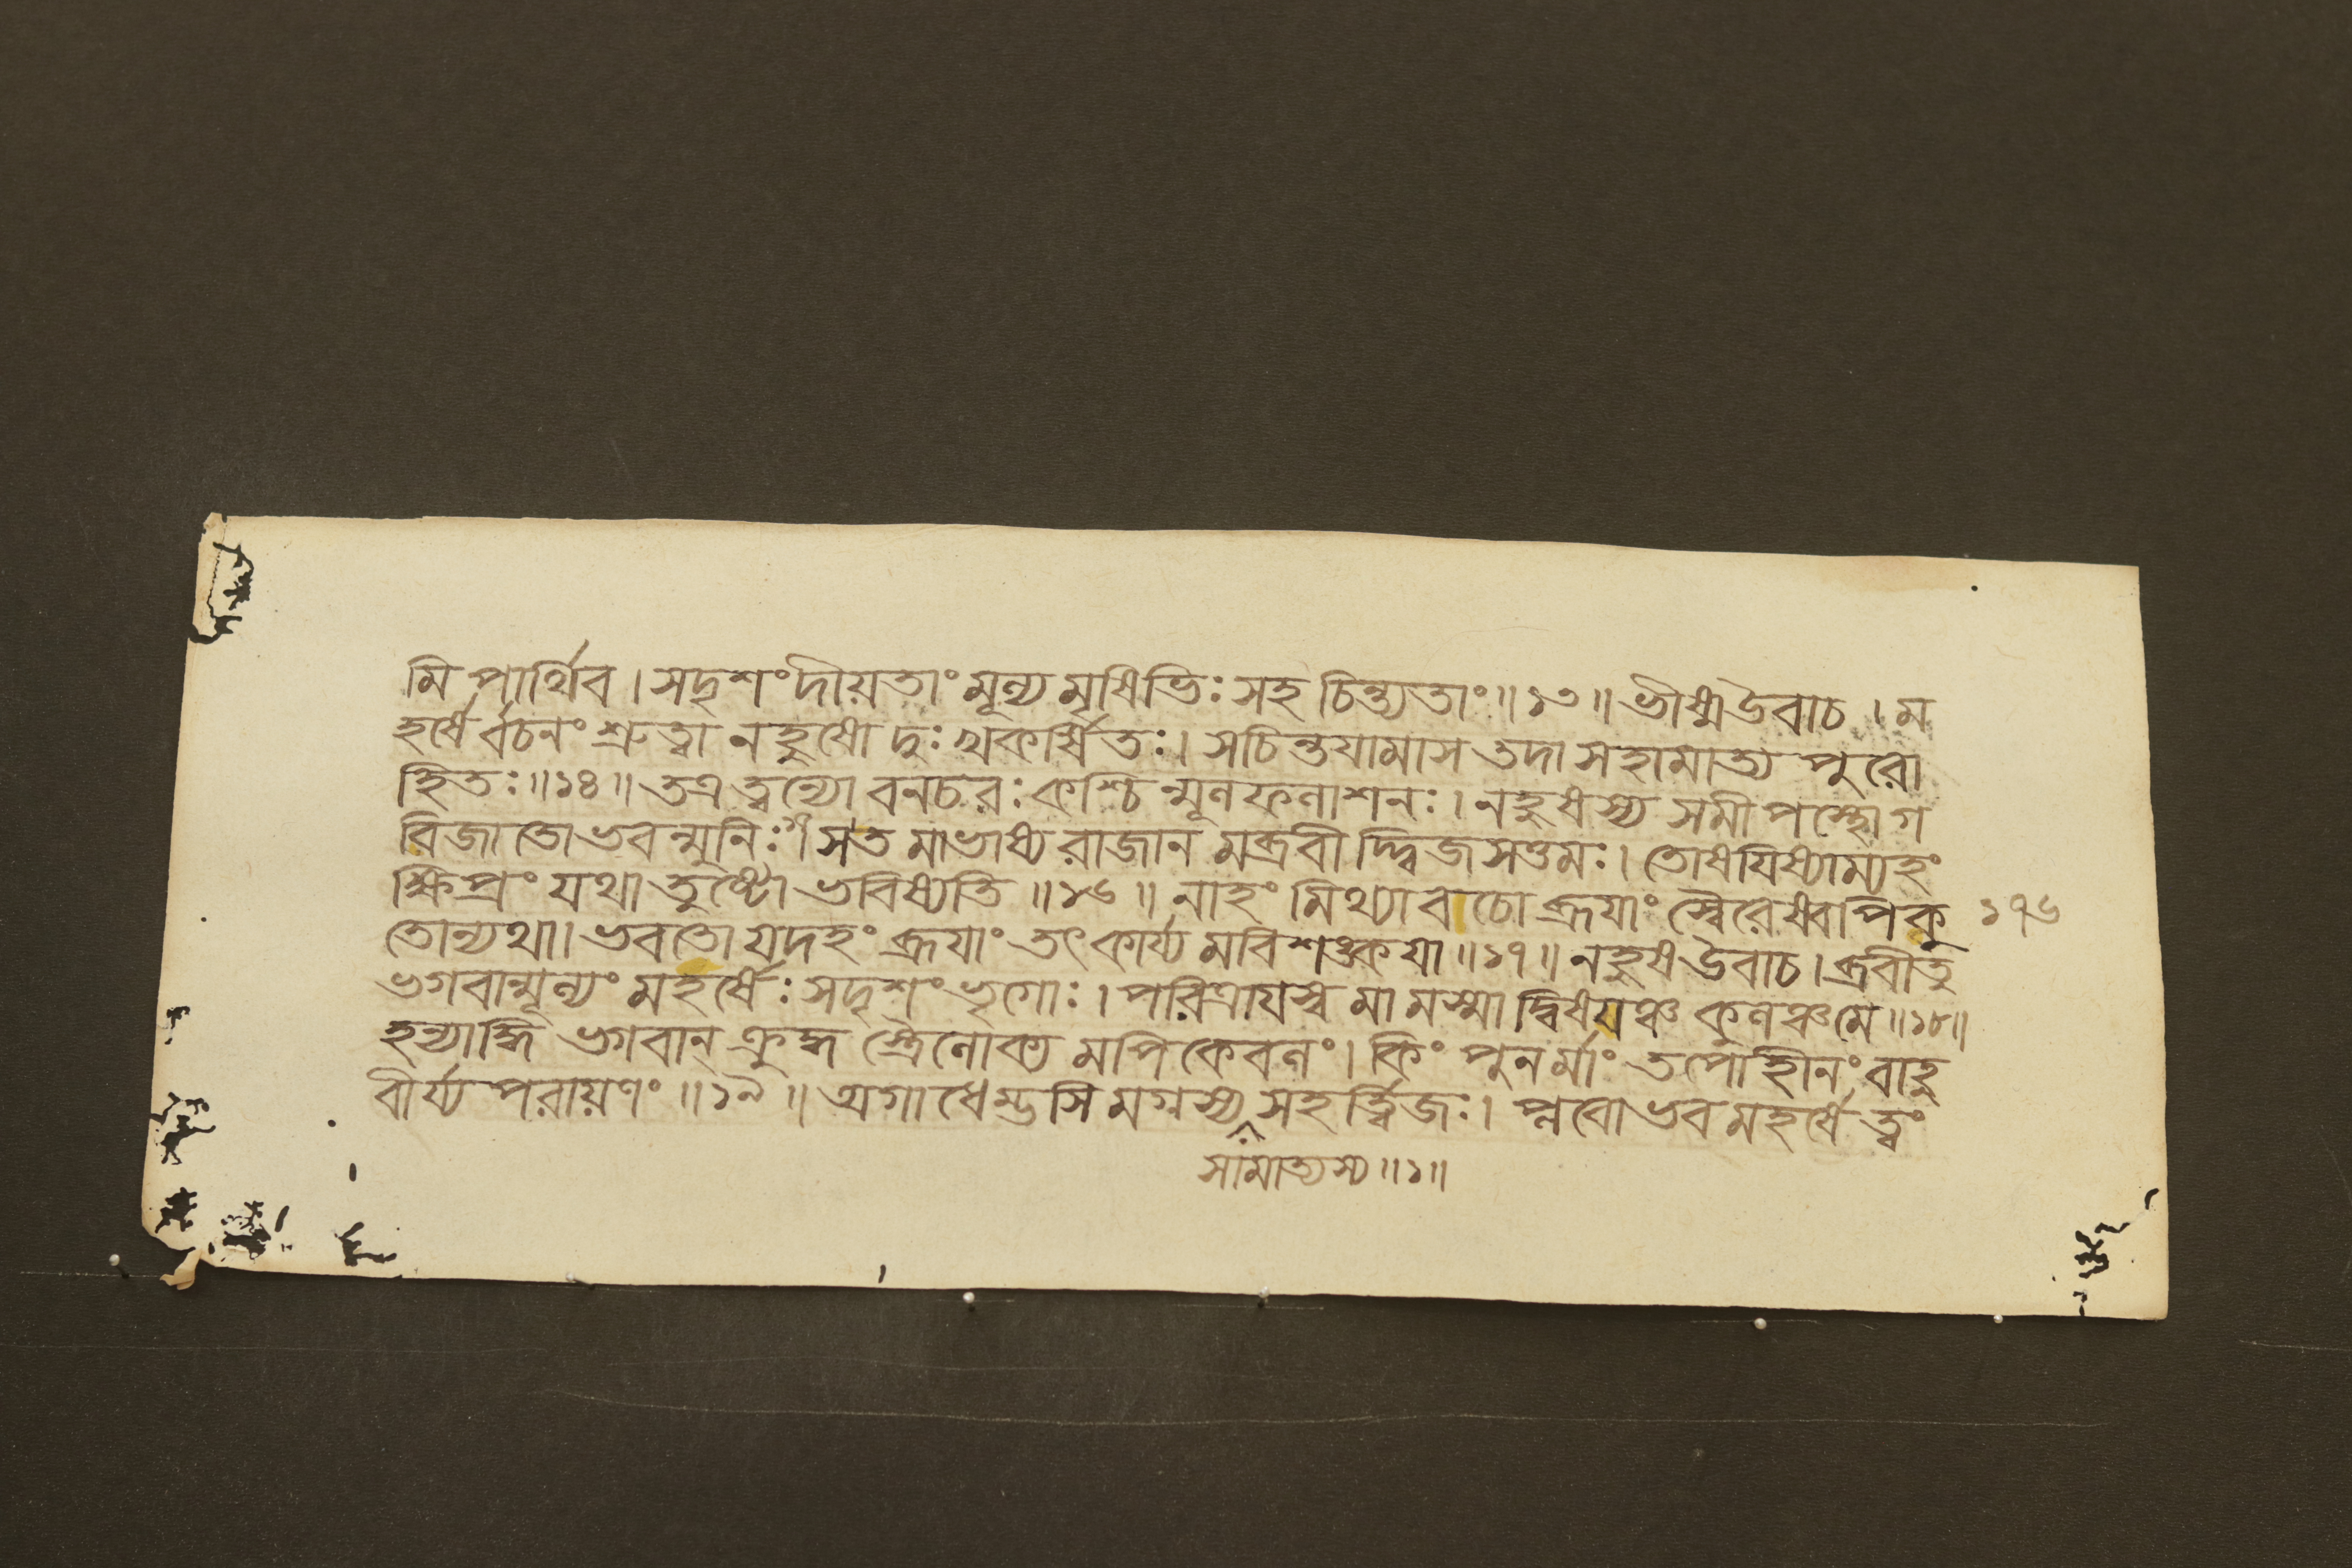 মি পার্থিব। সদৃশং দীয়তাং মূল্য মৃষিভিঃ সহ চিন্ত্যতাং॥১৩॥ ভীষ্মউবাচ। ম
হর্ষের্ব্বচনং শ্রুত্বা নহুষো দুঃখকর্ষিতঃ। সচিন্তযামাস তদা সহামাত্য পুরো
হিতঃ॥১৪॥ তত্র ত্বন্যো বনচরঃ কশ্চিন্মূলফলাশনঃ। নহুষস্য সমীপস্থোগ
বিজাতোভবন্মুনিঃ। সত মাভাষ্য রাজান মব্রবী দ্দ্বিজসত্তমঃ। তোষযিষ্যাম্যহং
ক্ষিপ্রং যথা তুষ্টো ভবিষ্যতি॥১৬॥ নাহং মিথ্যাবচো ব্রূযাং স্বৈরেষ্বপিকু
তোন্যথা। ভবতো যদহং ব্রূযাং তৎ কার্য্য মবিশঙ্কযা॥১৭॥ নহুষ উবাচ। ব্রবীতু
ভগবান্মূল্যং মহর্ষেঃ সদৃশং ভৃগোঃ। পরিত্রাযস্ব মা মস্মাদ্বিষযঞ্চ কুলঞ্চমে॥১৮॥
হন্যাদ্ধি ভগবান্ ক্রুদ্ধ স্ত্রৈলোক্য মপি কেবলং। কিং পুনর্মাং তপোহীনং বাহু
বীর্য্য পরায়ণং॥১৯॥ অগাধেম্ভসি মগ্নস্য সহর্ত্ত্বিজঃ। প্লবোভব মহর্ষে ত্বং
সামাত্যস্য॥১॥
১৭৬